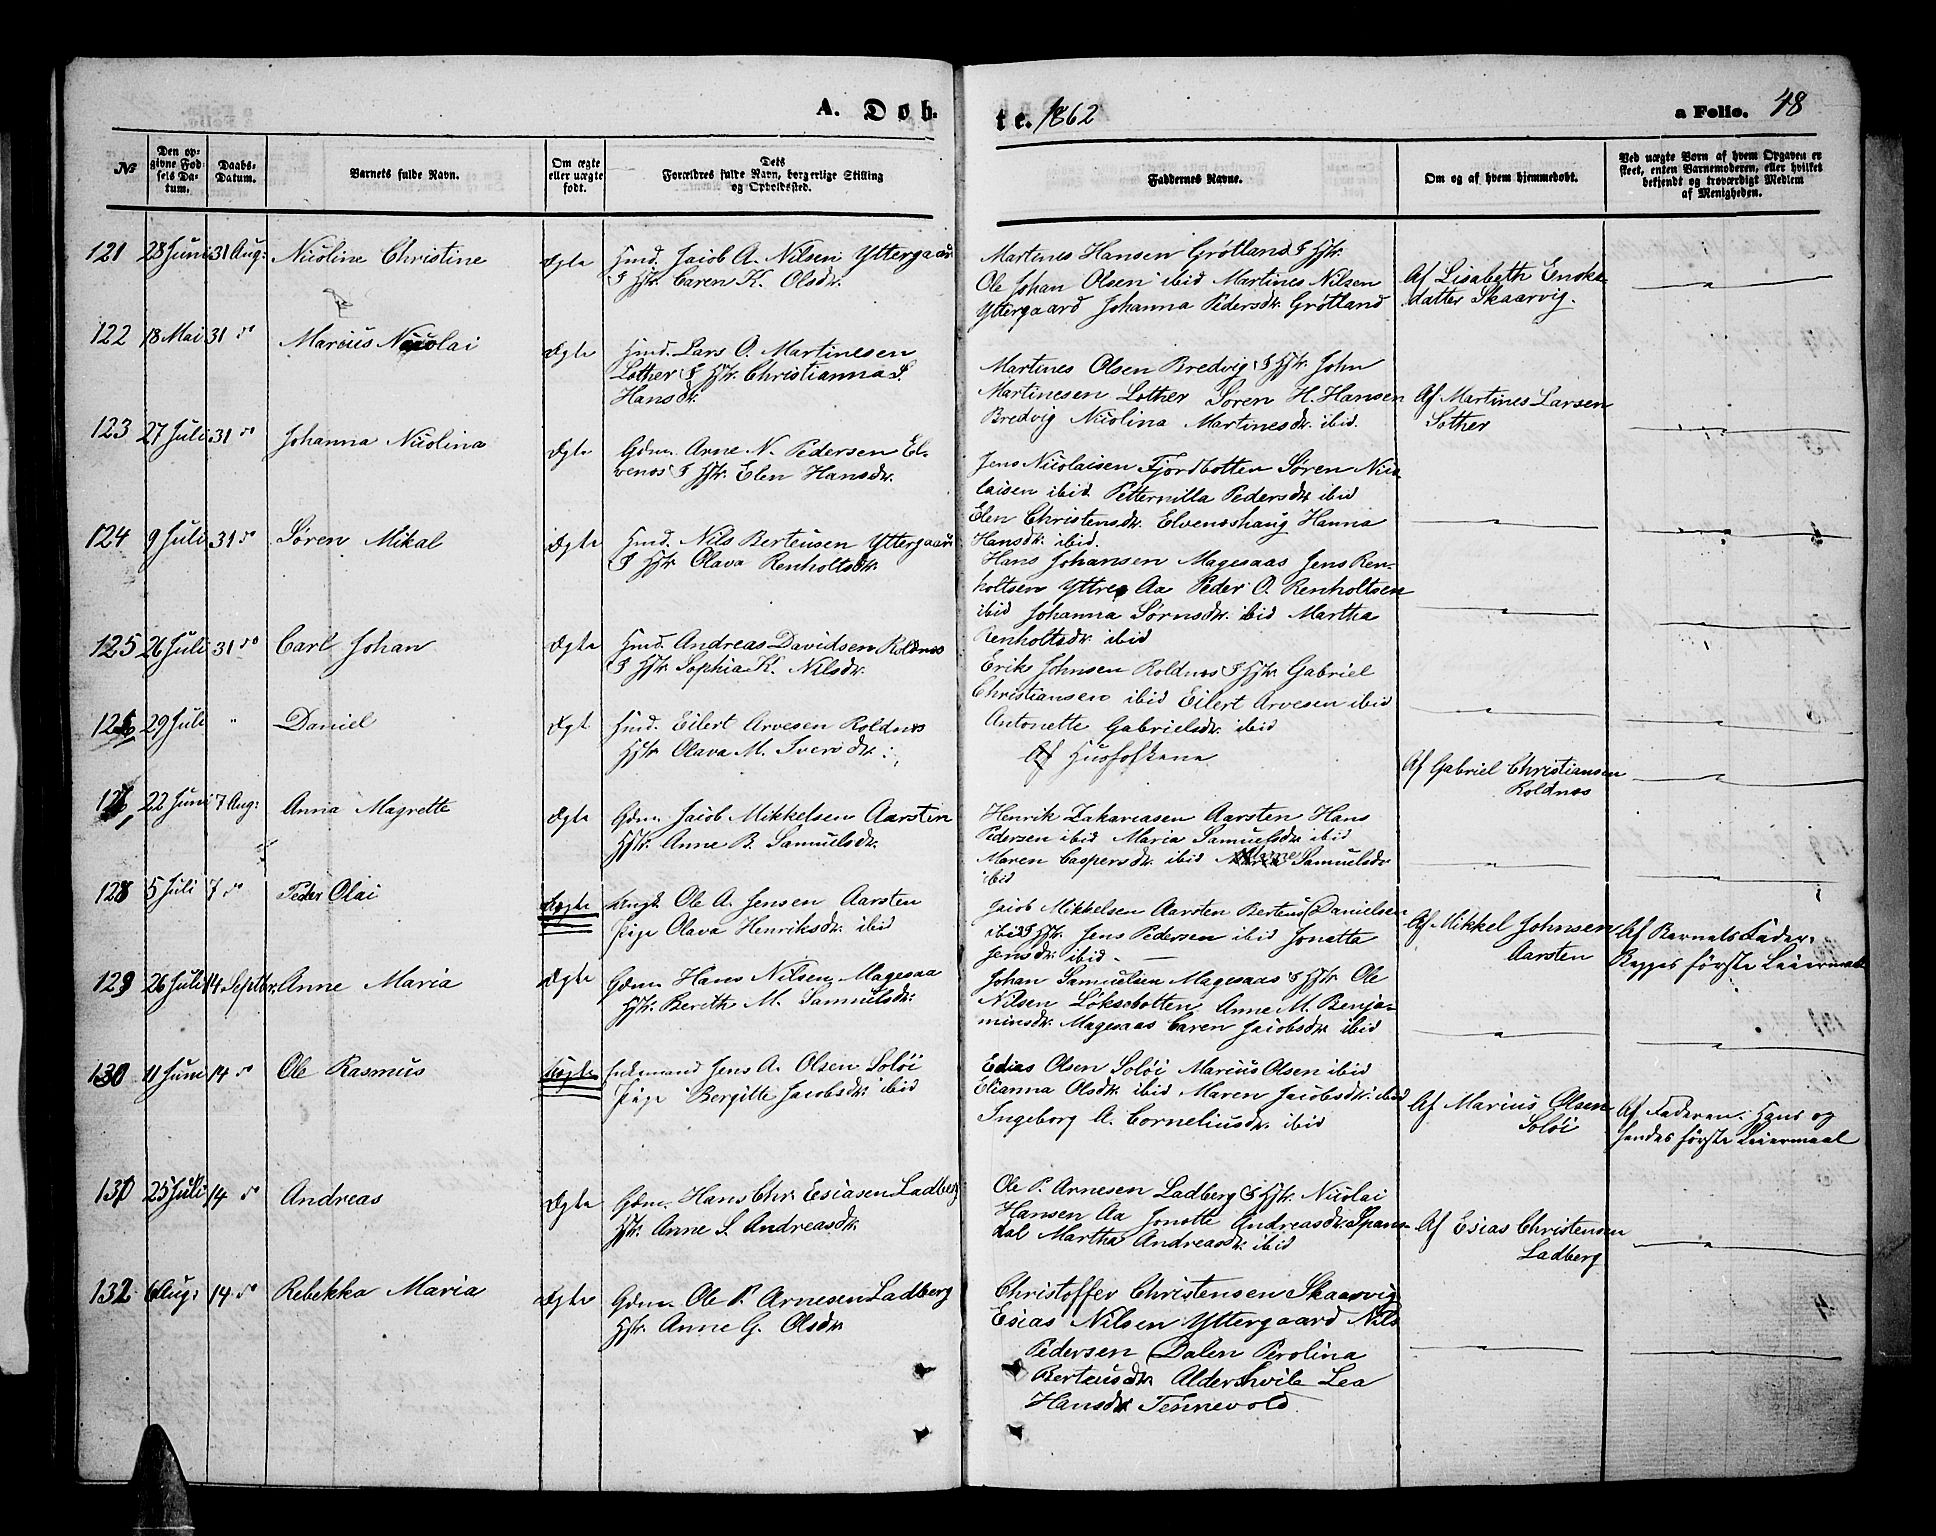 A. Døbte. 1862
a Folio. 48
No
Den opgivne Fødsels Datum.
Daabs-Datum.
Barnets fulde Navn.
Om ægte eller uægte født.
Dets Forældres fulde Navn, borgerlige Stilling og Opholdssted.
Faddernes Navne.
Om og af hvem hjemmedøbt.
Ved uægte Børn af hvem Opgaven er skeet, enten Barnemoderen, eller hvilket bekjendt og troværdigt Medlem af Menigheden.
121 28 Juni 31 Aug: Nicoline Christine Ægte
Hmd. Jacob A. Nilsen Yttergaard
& Hstr. Caren K. Olsdr.
Martines Hansen Grøtland & Hstr.
Ole Johan Olsen ibid Martines Nilsen
Yttergaard Johanna Pedersdr. Grøtland
Af Lisabeth Enoks-
datter Skaarvig.
122 18 Mai 31 do Marcus Nicolai Ægte
Hmd. Lars O. Martinesen
Lother & Hstr. Christianna S.
Hansdr.
Martines Olsen Bredvig & Hstr. John
Martinesen Lother Søren H. Hansen
Bredvig Nicolina Martinesdr. ibid.
Af Martines Larsen
Lother
123 27 Juli 31 do Johanna Nicolina Ægte
Gdm. Arne N. Pedersen El-
venes & Hstr. Elen Hansdr.
Jens Nicolaisen Fjordbotten Søren Nico
laisen ibid Petternilla Pedersdr ibid
Elen Christensdr. Elveneshaug Hanna
Hansdr. ibid.
124 9 Juli 31 do Søren Mikal Ægte
Hmd. Nils Berteusen Yttergaard
& Hstr Olava Renholtsdr.
Hans Johansen Magesaas Jens Ren-
holtsen Yttre Aa Peder O. Renholtsen
ibid Johanna Sørnsdr. ibid Martha
Renholtsdr. ibid
125 26 Juli 31 do Carl Johan Ægte
Hmd. Andreas Davidsen Roldnes
& Hstr Sophia K. Nilsdr.
Erik Johnsen Roldnes & Hstr Gabriel
Christiansen ibid Eilert Arvesen ibid
Antonette Gabrielsdr. ibid
126 29 Juli " Daniel Ægt
Hmd. Eilert Arvesen Roldnes
Hstr Olava M. Iversdr:
Af Husfolkene
Af Gabriel Christiansen
Roldnes
127 22 Juni 7 Aug: Anna Magrette Ægte
Gdm. Jacob Mikkelsen Aarsten
Hstr. Anne B. Samuelsdr.
Henrik Zakariasen Aarsten Hans
Pedersen ibid Maria Samuelsdr ibid
Maren Caspersdr. ibid Samuelsdr
ibid
128 5 Juli 7 do Peder Olai Uægte
Ungk. Ole A. Jensen Aarsten
Pige Olava Henriksdr. ibid
Jacob Mikkelsen Aarsten Berteus Danielsen
ibid & Hstr. Jens Pedersen ibid Jonetta
Jensdr. ibid.
Af Mikkel Johnsen
Aarsten
Af Barnets Fader.
Begges første Leiermaal
129 26 Juli 14 Septbr. Anne Maria Ægte
Gdm. Hans Nilsen Magesaa
Hstr. Berith M. Samuelsdr:
Johan Samuelsen Magesaas & Hstr Ole
Nilsen Løksebotten Anne M. Benja-
minsdr. Magesaas Caren Jacobsdr. ibid
130 11 Juni 14 do Ole Rasmus Uægte
Enkemand Jens A. Olsen Soløi
Pige Bergitte Jacobsdr: ibid
Edias Olsen Soløi Marius Olsen ibid
Elianna Olsdr. ibid Maren Jacobsdr. ibid
Ingeborg A. Corneliusdr. ibid
Af Marius Olsen
Soløi
Af Faderen. Hans og
hendes første Leiermaal
131 25 Juli 14 do Andreas Ægte
Gdm. Hans Chr. Esiasen Ladberg
Hstr. Anne S. Andreasdr.
Ole P. Arnesen Ladberg & Hstr. Nicolai
Hansen Aa Jonette Andreasdr. Spans-
dal Martha Andreasdr. ibid
Af Esias Christensen
Ladberg
132 6 Aug: 14 do Rebekka Maria Ægte
Gdm. Ole P. Arnesen Ladberg
Hstr. Anne G. Olsdr.
Christoffer Christensen Skaarvig
Esias Nilsen Yttergaard Nils
Pedersen Dalen Perolina
Berteusdr. Aldershvile Lea
Hansdr. Tennevold.